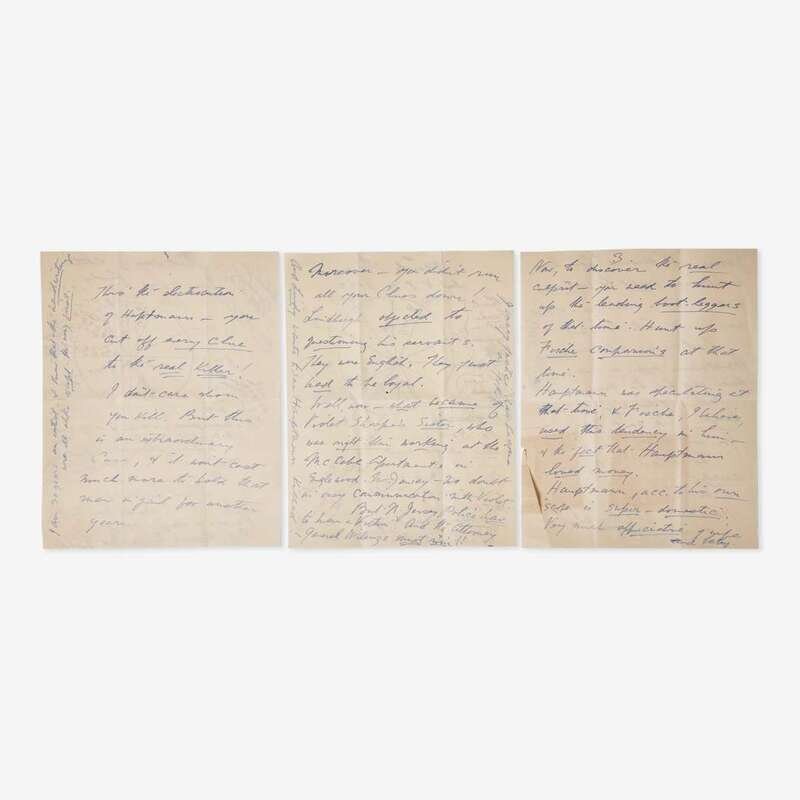 Thro' the electrocution
of Hauptmann - you
cut off every clue
to the real Killer!
I don't care whom
you kill. But this
is an extraordinary
Case, & it won't cost
much more to hold that
man in jail for another
year.
Moreover - you didn't run
all your Clues down!
Lindbergh objected to
questioning his servants.
They were English. They just
had to be loyal.
Well, now - what became of
Violet Sharpe's Sister, who
was right then working at the
McCabe Apartments in
Englewood N. Jersey - no doubt
in easy communication with Violet
But N. Jersey Police have
to have a Victim - And the Attorney
General Wilentz must win!!
3
Now, to discover the real
culprit - you need to hunt
up the leading boot-leggers
of that time. Hunt up
Fische companions at that
time.
Hauptmann was speculating at
that time, & Fische, I believe,
used this tendency in him -
& the fact that Hauptmann
loved money.
Hauptmann, acc. to his own
is super-domestic.
Very much appreciative of wife
and baby